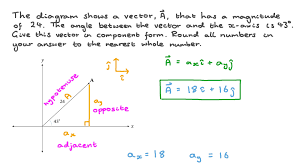 The diagram shows a vector, A⃗, that has a magnitude
of 24. The angle between the vector and the x-axis is 43°.
Give this vector in component form. Round all numbers in
your answer to the nearest whole number.
ĵ
î
A⃗ = aₓî + a_yĵ
A⃗ = 18î + 16ĵ
y
A
hypotenuse
24
A⃗
a_y
opposite
43°
x
aₓ
adjacent
aₓ = 18 a_y = 16